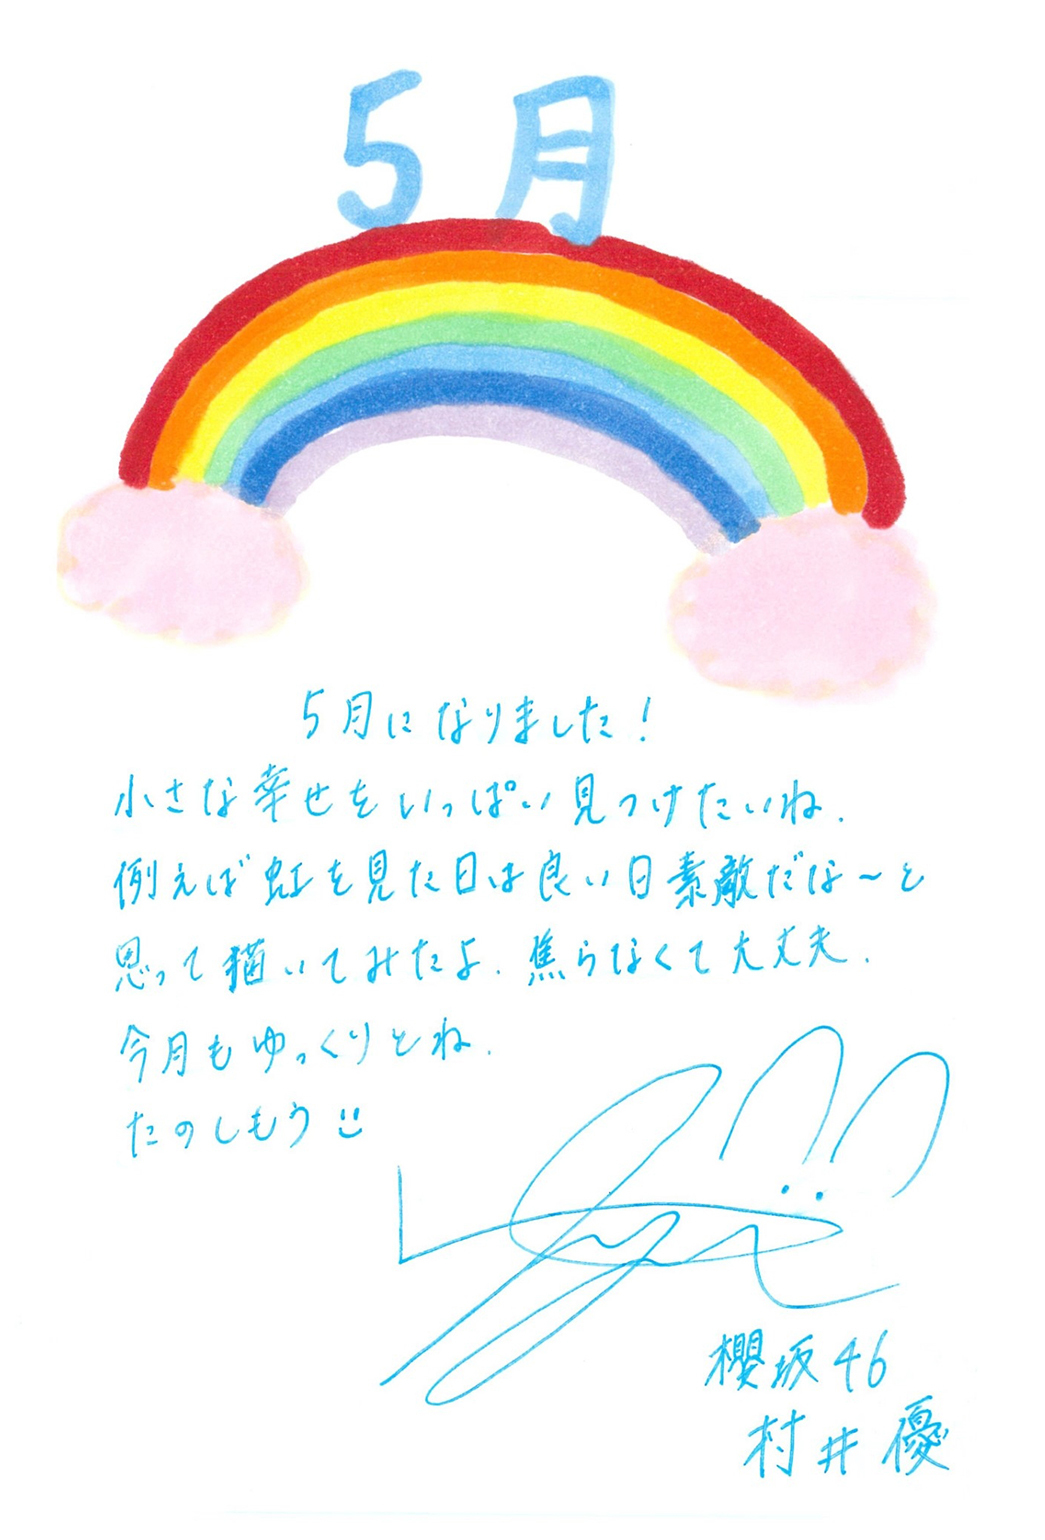 5月
5月になりました！
小さな幸せをいっぱい見つけたいね.
例えば虹を見た日は良い日素敵だな〜と
思って描いてみたよ.焦らなくて大丈夫.
今月もゆっくりとね.
たのしもう
櫻坂46
村井優